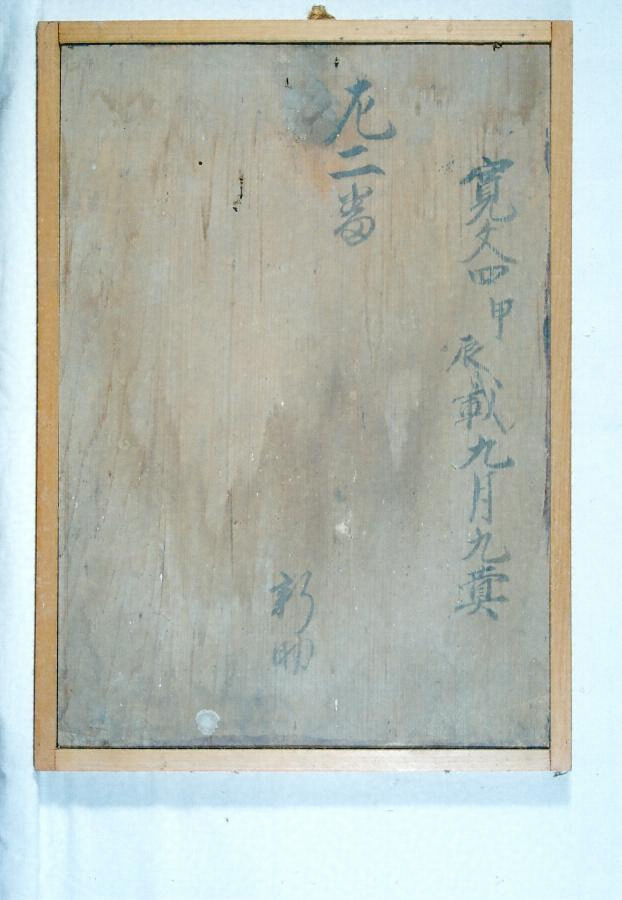 寛文四甲辰載九月九蓂
左二番
新助